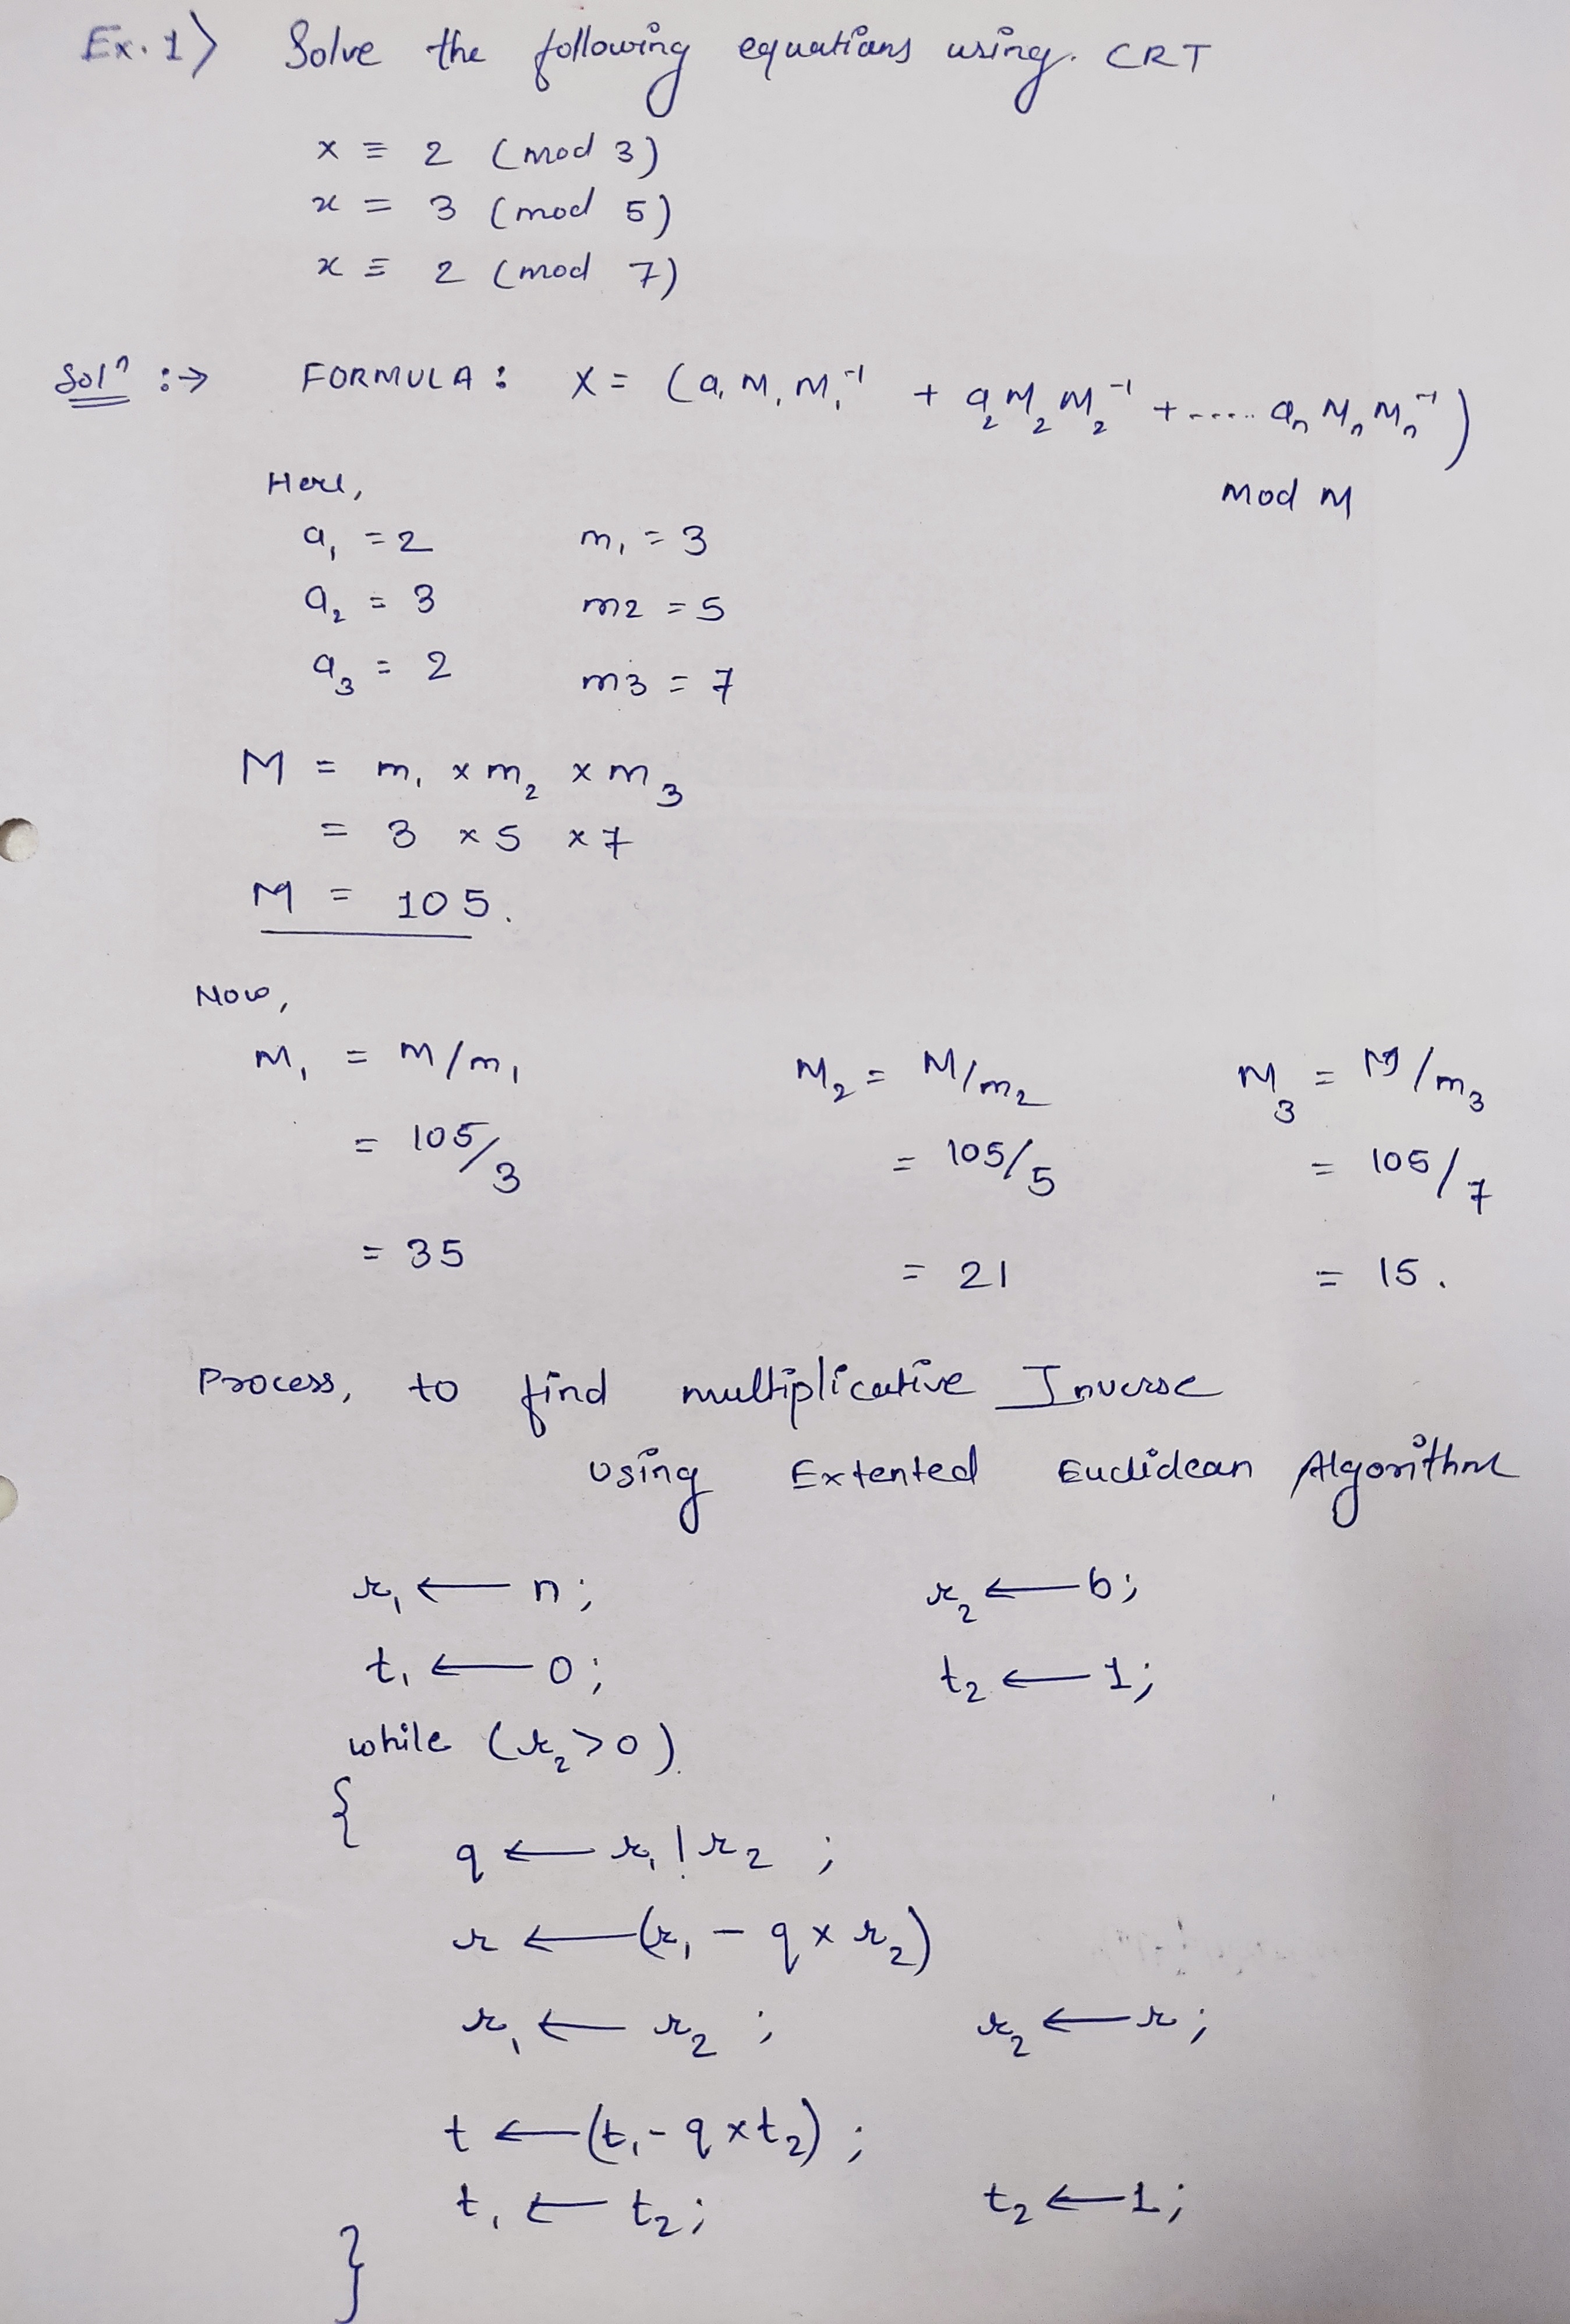 Ex. 1) Solve the following equations using. CRT
x ≡ 2 (mod 3)
x = 3 (mod 5)
x ≡ 2 (mod 7)
Solⁿ :→ FORMULA: X = (a₁ M₁ M₁⁻¹ + a₂ M₂ M₂⁻¹ + ..... aₙ Mₙ Mₙ⁻¹)
mod M
Here,
a₁ = 2 m₁ = 3
a₂ = 3 m2 = 5
a₃ = 2 m3 = 7
M = m₁ × m₂ × m₃
= 3 × 5 × 7
M = 105.
Now,
M₁ = M/m₁ M₂ = M/m₂ M₃ = M/m₃
= 105/3 = 105/5 = 105/7
= 35 = 21 = 15.
Process, to find multiplicative Inverse
Using Extented Euclidean Algorithm
r₁ ← n; r₂ ← b;
t₁ ← 0; t₂ ← 1;
while (r₂ > 0)
{
q ← r₁ / r₂ ;
r ← (r₁ - q × r₂)
r₁ ← r₂ ; r₂ ← r;
t ← (t₁ - q × t₂) ;
t₁ ← t₂; t₂ ← 1;
}